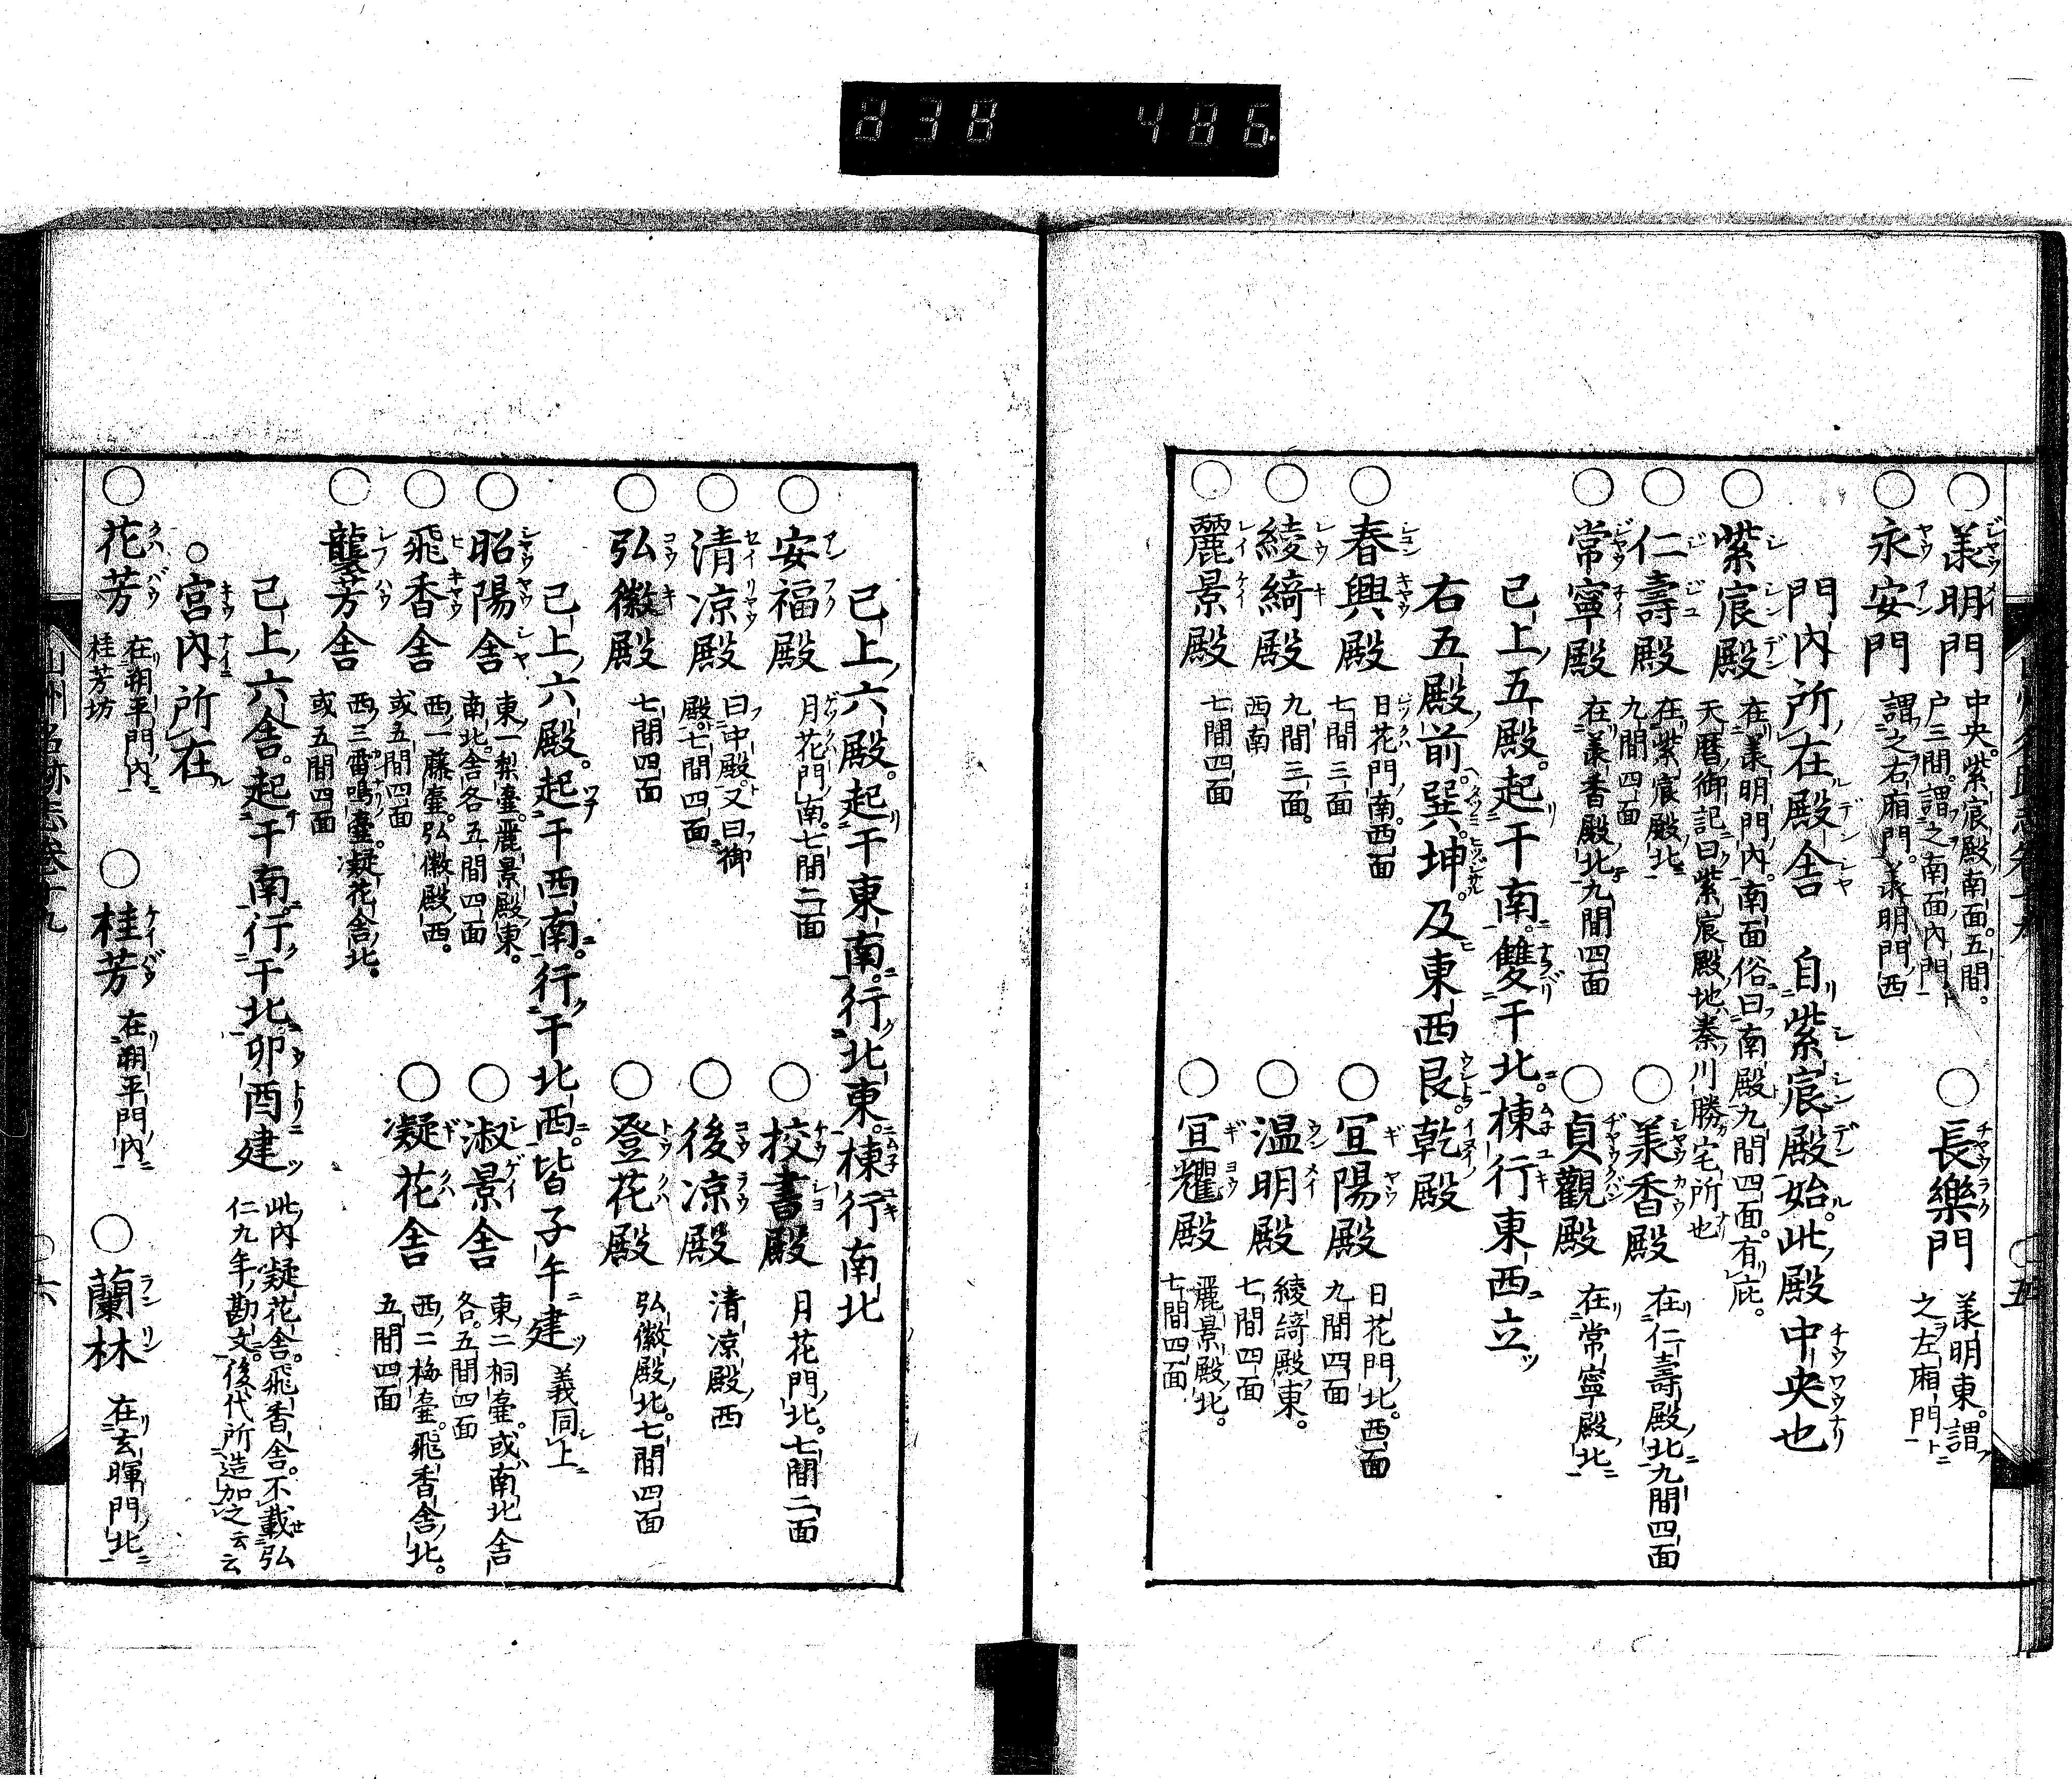 838 486
○羕明門 中央。紫宸殿南面。五間。
户三間。謂之南面內門
○長樂門 羕明東。謂
之左廂門
○永安門 謂之右廂門。羕明門西
門內所在殿舎 自紫宸殿始。此殿中央也
○紫宸殿 在羕明門內。南面俗曰南殿九間四面。有庇。
天曆御記曰紫宸殿地秦川勝宅所也
○仁壽殿 在紫宸殿北
九間四面
○羕香殿 在仁壽殿北九間四面
○常寧殿 在羕香殿北九間四面
○貞觀殿 在常寧殿北
已上五殿。起于南。雙于北。棟行東西立
右五殿前巽。坤。及東西艮。乾殿
○春興殿 日花門南。西面
七間三面
○宜陽殿 日花門北。西面
九間四面
○綾綺殿 九間三面。
西南
○温明殿 綾綺殿東。
七間四面
○麗景殿 七間四面
○宜耀殿 麗景殿北。
七間四面
五
已上六殿。起于東南。行北東。棟行南北
○安福殿 月花門南。七間二面
○校書殿 月花門北。七間二面
○清凉殿 曰中殿。又曰御
殿。七間四面
○後凉殿 清凉殿西
○弘徽殿 七間四面
○登花殿 弘徽殿北。七間四面
已上六殿。起于西南。行于北西。皆子午建 義同上
○昭陽舎 東一梨臺。麗景殿東。
南北舎各五間四面
○淑景舎 東二桐臺。或南北舎
各。五間四面
○飛香舎 西一藤臺。弘徽殿西。
或五間四面
○凝花舎 西二梅臺。飛香舎北。
五間四面
○襲芳舎 西三雷鳴臺。凝花舎北。
或五間四面
已上六舎。起于南行于北卯酉建 此內凝花舎。飛香舎。不載弘
仁九年勘文。後代所造加之云云
○宮內所在
○花芳 在朔平門內
桂芳坊
○桂芳 在朔平門內
○蘭林 在玄暉門北
山州名跡志卷十九
六